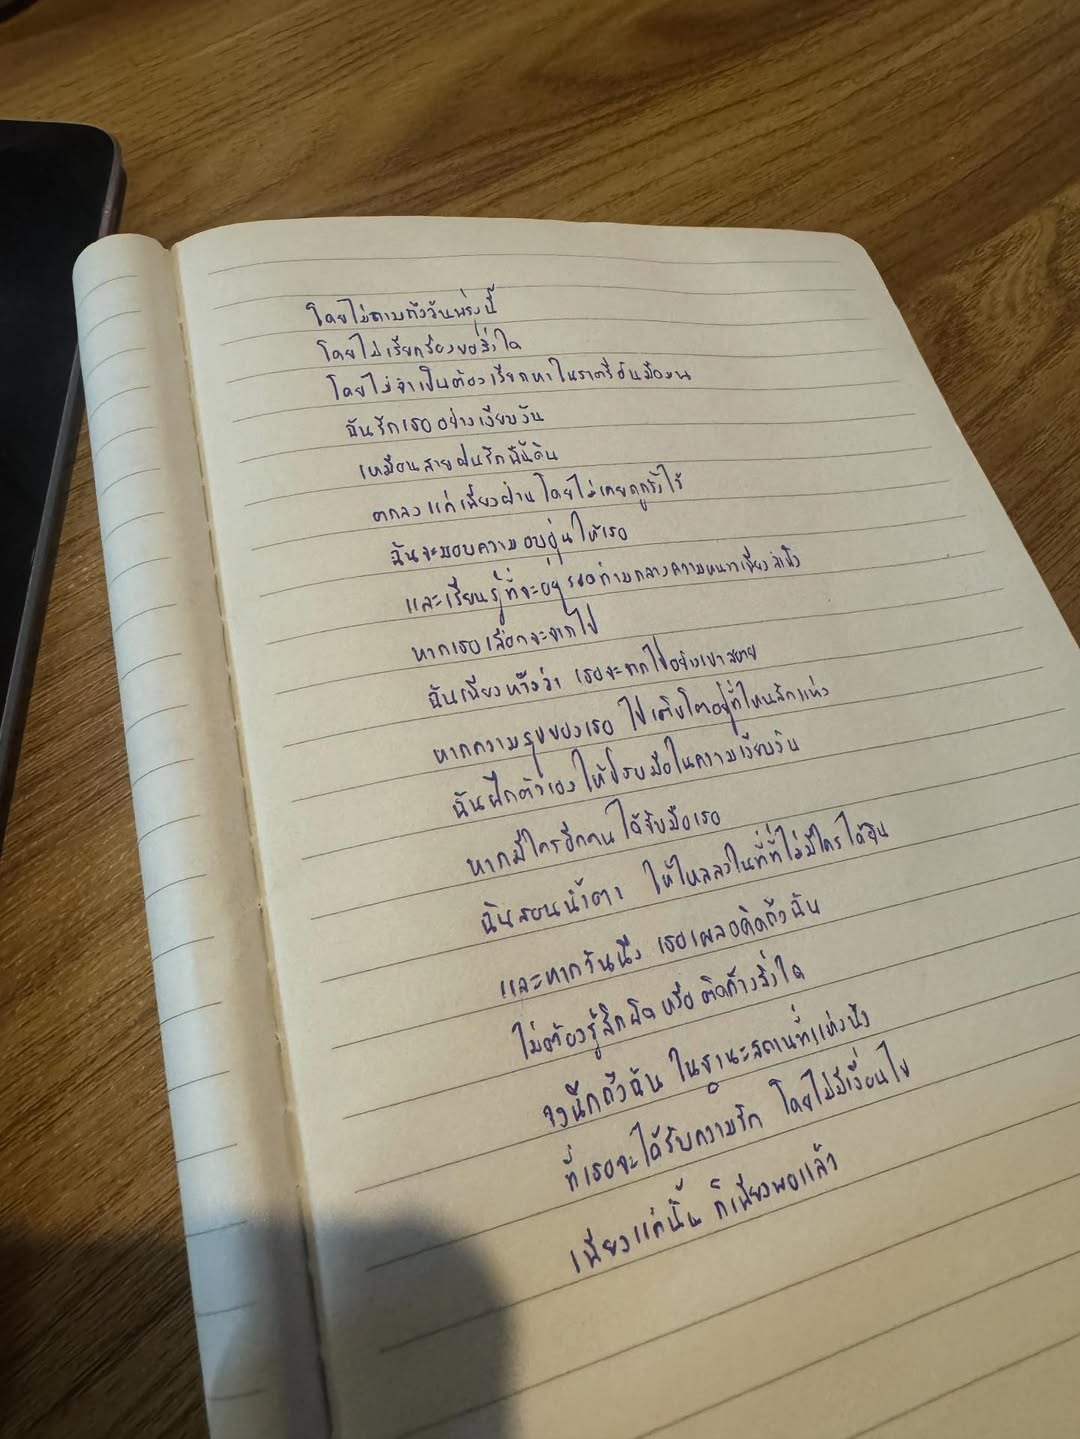 โดยไม่ถามถึงวันพรุ่งนี้
โดยไม่เรียกร้องขอสิ่งใด
โดยไม่จำเป็นต้องเรียกหาในราตรีอันมืดมน
ฉันรักเธออย่างเงียบงัน
เหมือนสายฝนรักผืนดิน
ตกลงแค่เพียงผ่านโดยไม่เคยถูกรั้งไว้
ฉันจะมอบความอบอุ่นให้เธอ
และเรียนรู้ที่จะอยู่รอดท่ามกลางความหนาวเพียงลำพัง
หากเธอเลือกจะจากไป
ฉันเพียงหวังว่า เธอจะจากไปอย่างเบาสบาย
หากความสุขของเธอ ไปเติบโตอยู่ที่ไหนสักแห่ง
ฉันฝึกตัวเองให้ปรบมือในความเงียบงัน
หากมีใครอีกคนได้จับมือเธอ
ฉันสอนน้ำตา ให้ไหลลงในที่ที่ไม่มีใครได้ยิน
และหากวันนึง เธอเผลอคิดถึงฉัน
ไม่ต้องรู้สึกผิด หรือ ติดค้างสิ่งใด
จงนึกถึงฉัน ในฐานะสถานที่แห่งนึง
ที่เธอจะได้รับความรัก โดยไม่มีเงื่อนไข
เพียงแค่นั้น ก็เพียงพอแล้ว